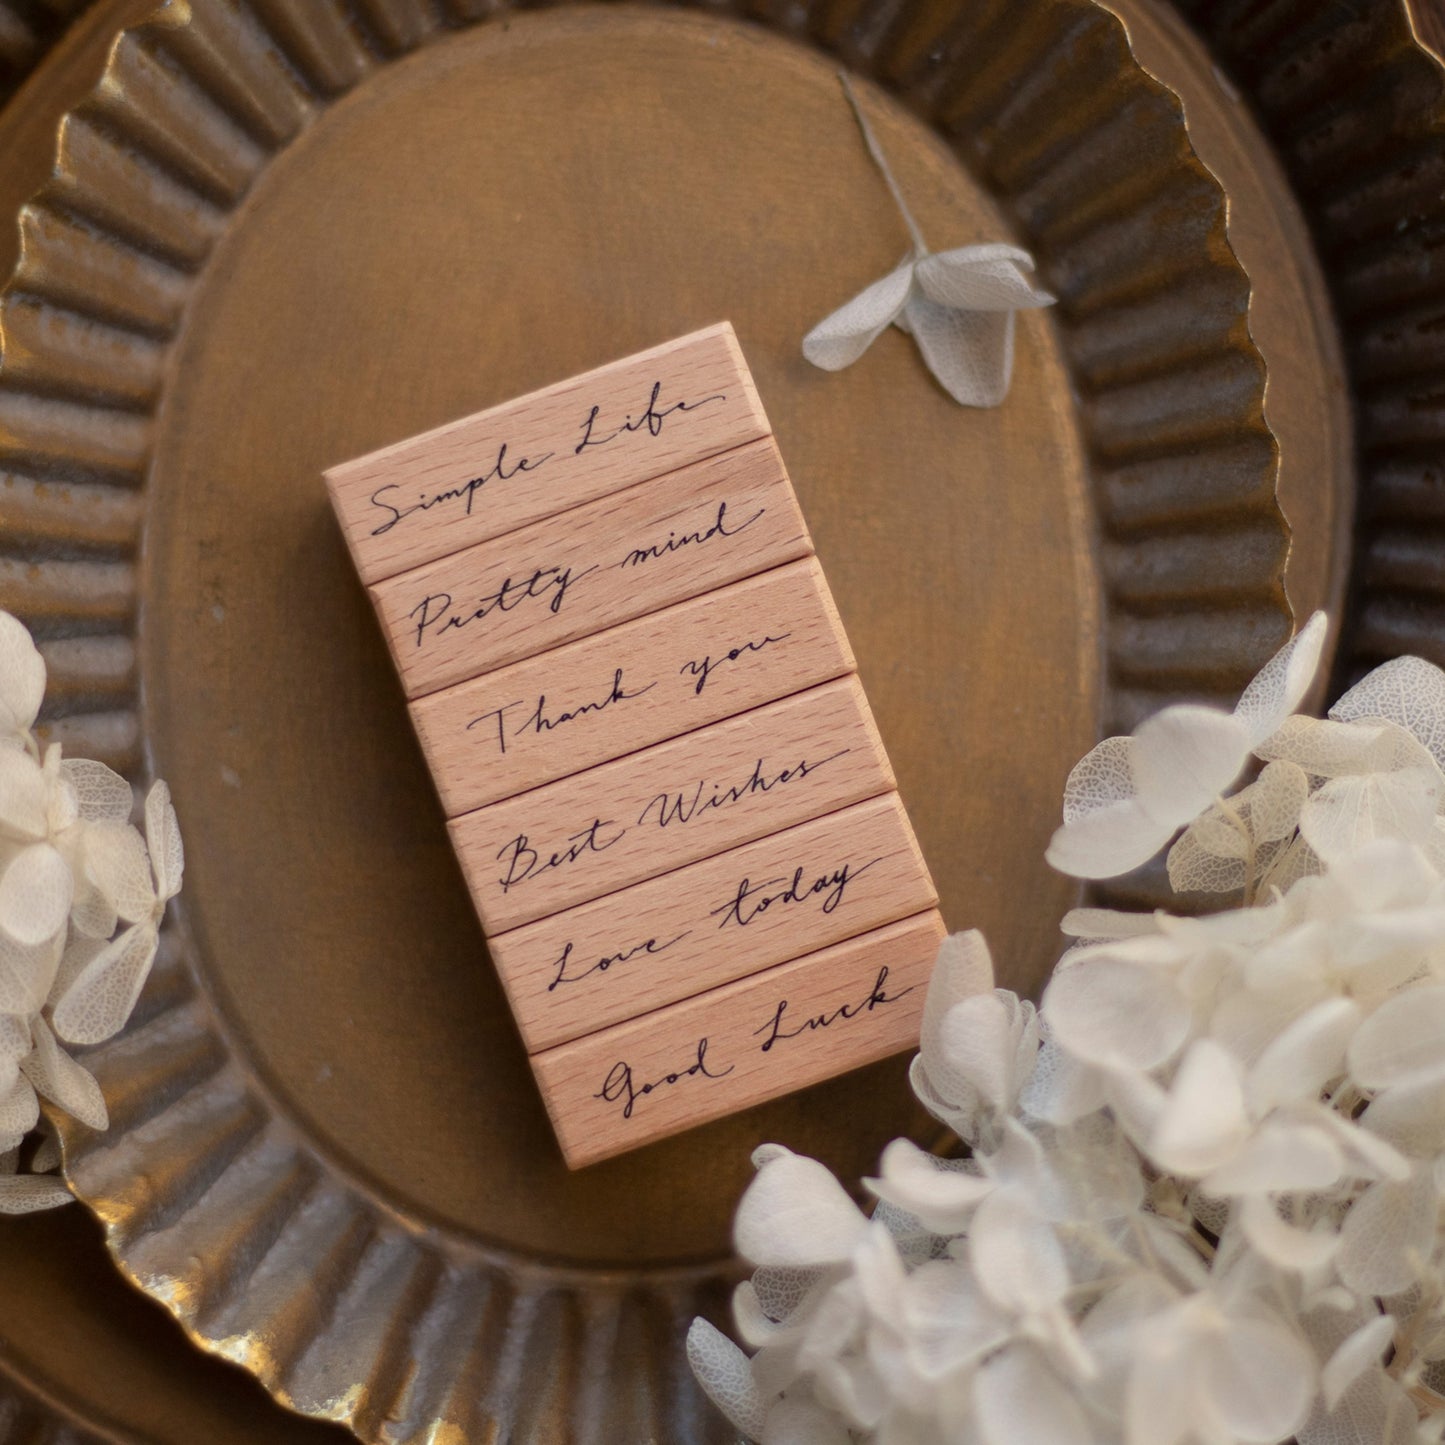 Simple Life
Pretty mind
Thank you
Best Wishes
Love today
Good Luck